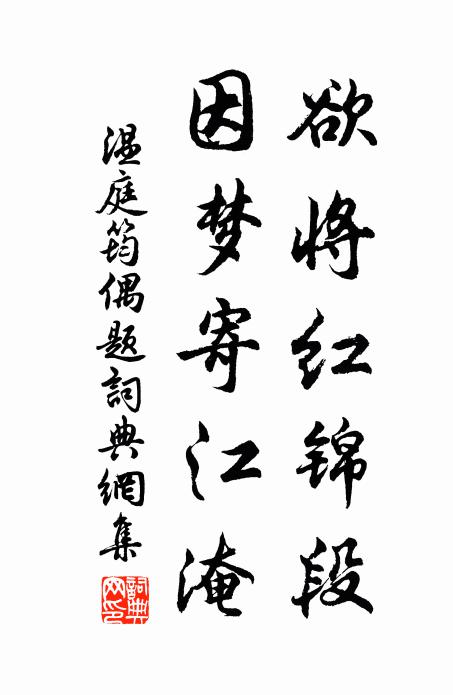 欲将红锦段
因梦寄江淹
温庭筠偶题詞典網集
詞典網印